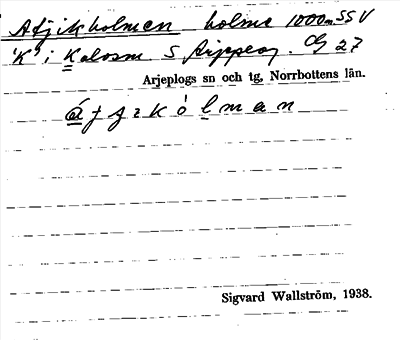 Atjikholmen holme 1000m SSV
"K" i Kalosm. S Rippeoj. Cg 27
Arjeplogs sn och tg, Norrbottens län.
Sigvard Wallström, 1938.